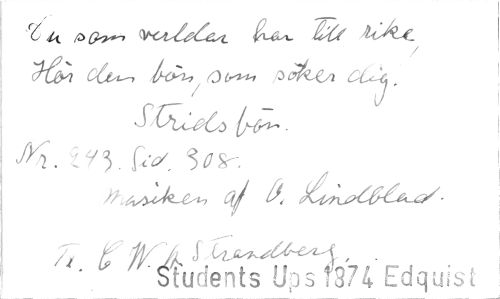 Du som verldar har till rike,
Hör den bön, som söker dig!
Stridsbön.
Nr. 243. Sid. 308.
Musiken af O. Lindblad.
Tr. C W A Strandberg.
Students Ups 1874 Edquist